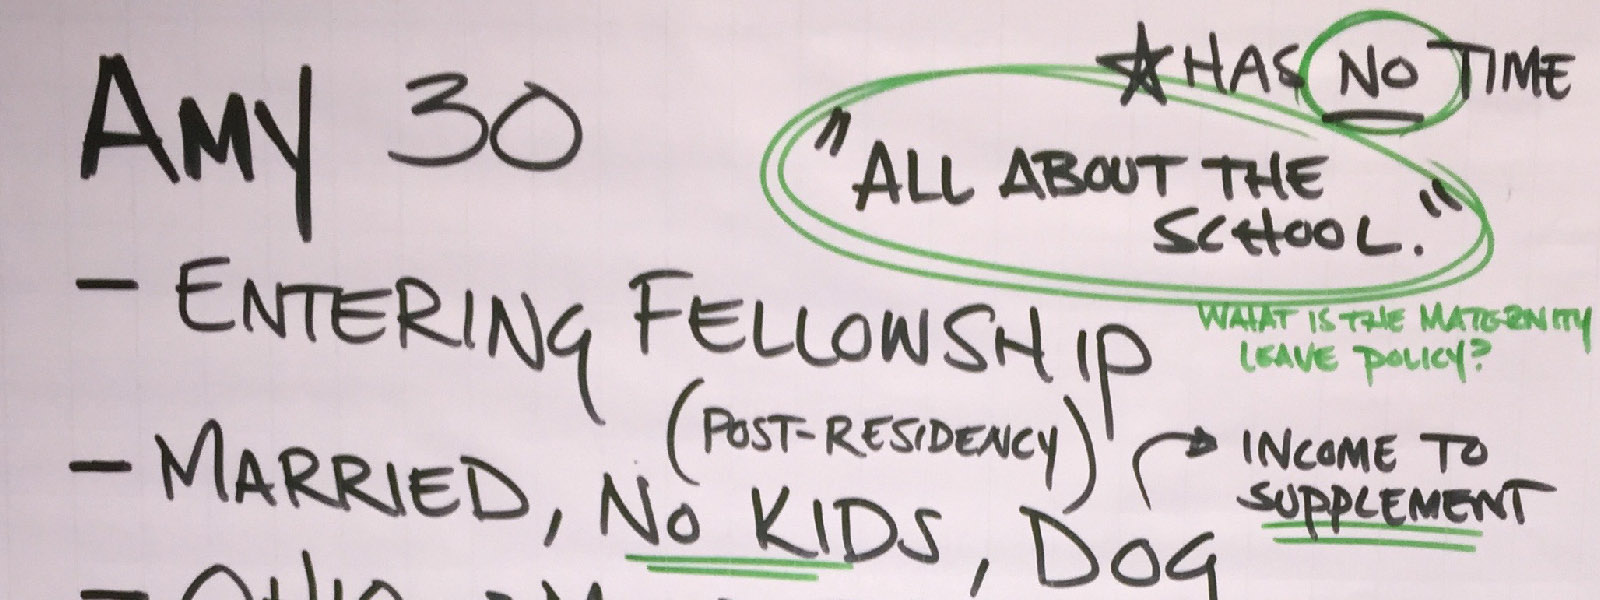 AMY 30
☆ HAS NO TIME
"ALL ABOUT THE
SCHOOL."
- ENTERING FELLOWSHIP
(POST-RESIDENCY)
WHAT IS THE MATERNITY
LEAVE POLICY?
- MARRIED, NO KIDS, DOG
→ INCOME TO
SUPPLEMENT